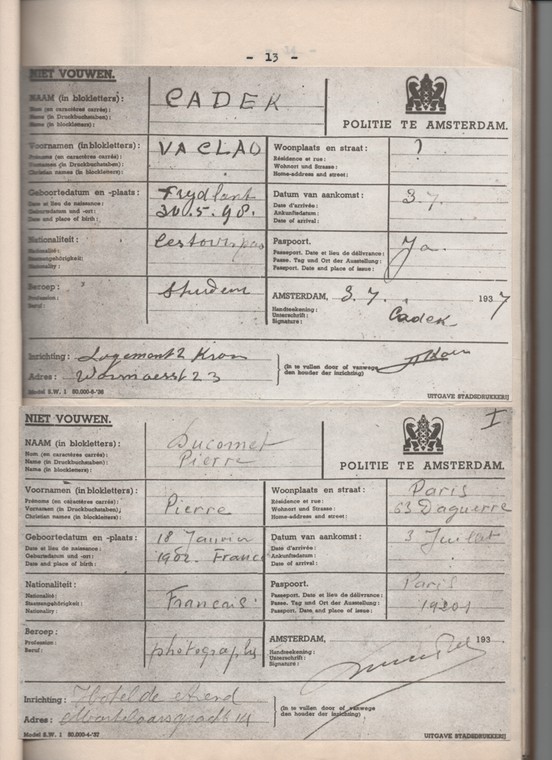 - 13 -
NIET VOUWEN.
NAAM (in blokletters): CADEK
Nom (en caractères carrés):
Name (in Druckbuchstaben):
Name (in blockletters):
POLITIE TE AMSTERDAM.
Voornamen (in blokletters): VACLAV
Prénoms (en caractères carrés):
Vornamen (in Druckbuchstaben):
Christian names (in blockletters):
Woonplaats en straat: ?
Résidence et rue:
Wohnort und Strasse:
Home-address and street:
Geboortedatum en -plaats: Frydlant
30.5.98.
Date et lieu de naissance:
Geburtsdatum und -ort:
Date and place of birth:
Datum van aankomst: 3.7.
Date d'arrivée:
Ankunftsdatum:
Date of arrival:
Nationaliteit: Cestovni pas
Nationalité:
Staatsangehörigkeit:
Nationality:
Paspoort. Ja.
Passeport. Date et lieu de délivrance:
Passe. Tag und Ort der Ausstellung:
Passport. Date and place of issue:
Beroep:
Profession:
Beruf:
AMSTERDAM, 3.7. 1937
Handteekening:
Unterschrift:
Signature:
Cadek
Inrichting: Logement 2 Kron
Adres: 23
(In te vullen door of vanwege
den houder der inrichting)
Model S.W. 1 50.000-6-'36
UITGAVE STADSDRUKKERIJ
I
NIET VOUWEN.
NAAM (in blokletters): Ducomet
Pierre
Nom (en caractères carrés):
Name (in Druckbuchstaben):
Name (in blockletters):
POLITIE TE AMSTERDAM.
Voornamen (in blokletters): Pierre
Prénoms (en caractères carrés):
Vornamen (in Druckbuchstaben):
Christian names (in blockletters):
Woonplaats en straat: Paris
63 Daguerre
Résidence et rue:
Wohnort und Strasse:
Home-address and street:
Geboortedatum en -plaats: 18 Janvier
1902. France
Date et lieu de naissance:
Geburtsdatum und -ort:
Date and place of birth:
Datum van aankomst: 3 Juillet
Date d'arrivée:
Ankunftsdatum:
Date of arrival:
Nationaliteit: Francais.
Nationalité:
Staatsangehörigkeit:
Nationality:
Paspoort. Paris
19201
Passeport. Date et lieu de délivrance:
Passe. Tag und Ort der Ausstellung:
Passport. Date and place of issue:
Beroep: photographe
Profession:
Beruf:
AMSTERDAM, 193
Handteekening:
Unterschrift:
Signature:
Inrichting: Hotel de
Adres: Martelaarsgracht 14
(In te vullen door of vanwege
den houder der inrichting)
Model S.W. 1 50.000-4-'32
UITGAVE STADSDRUKKERIJ